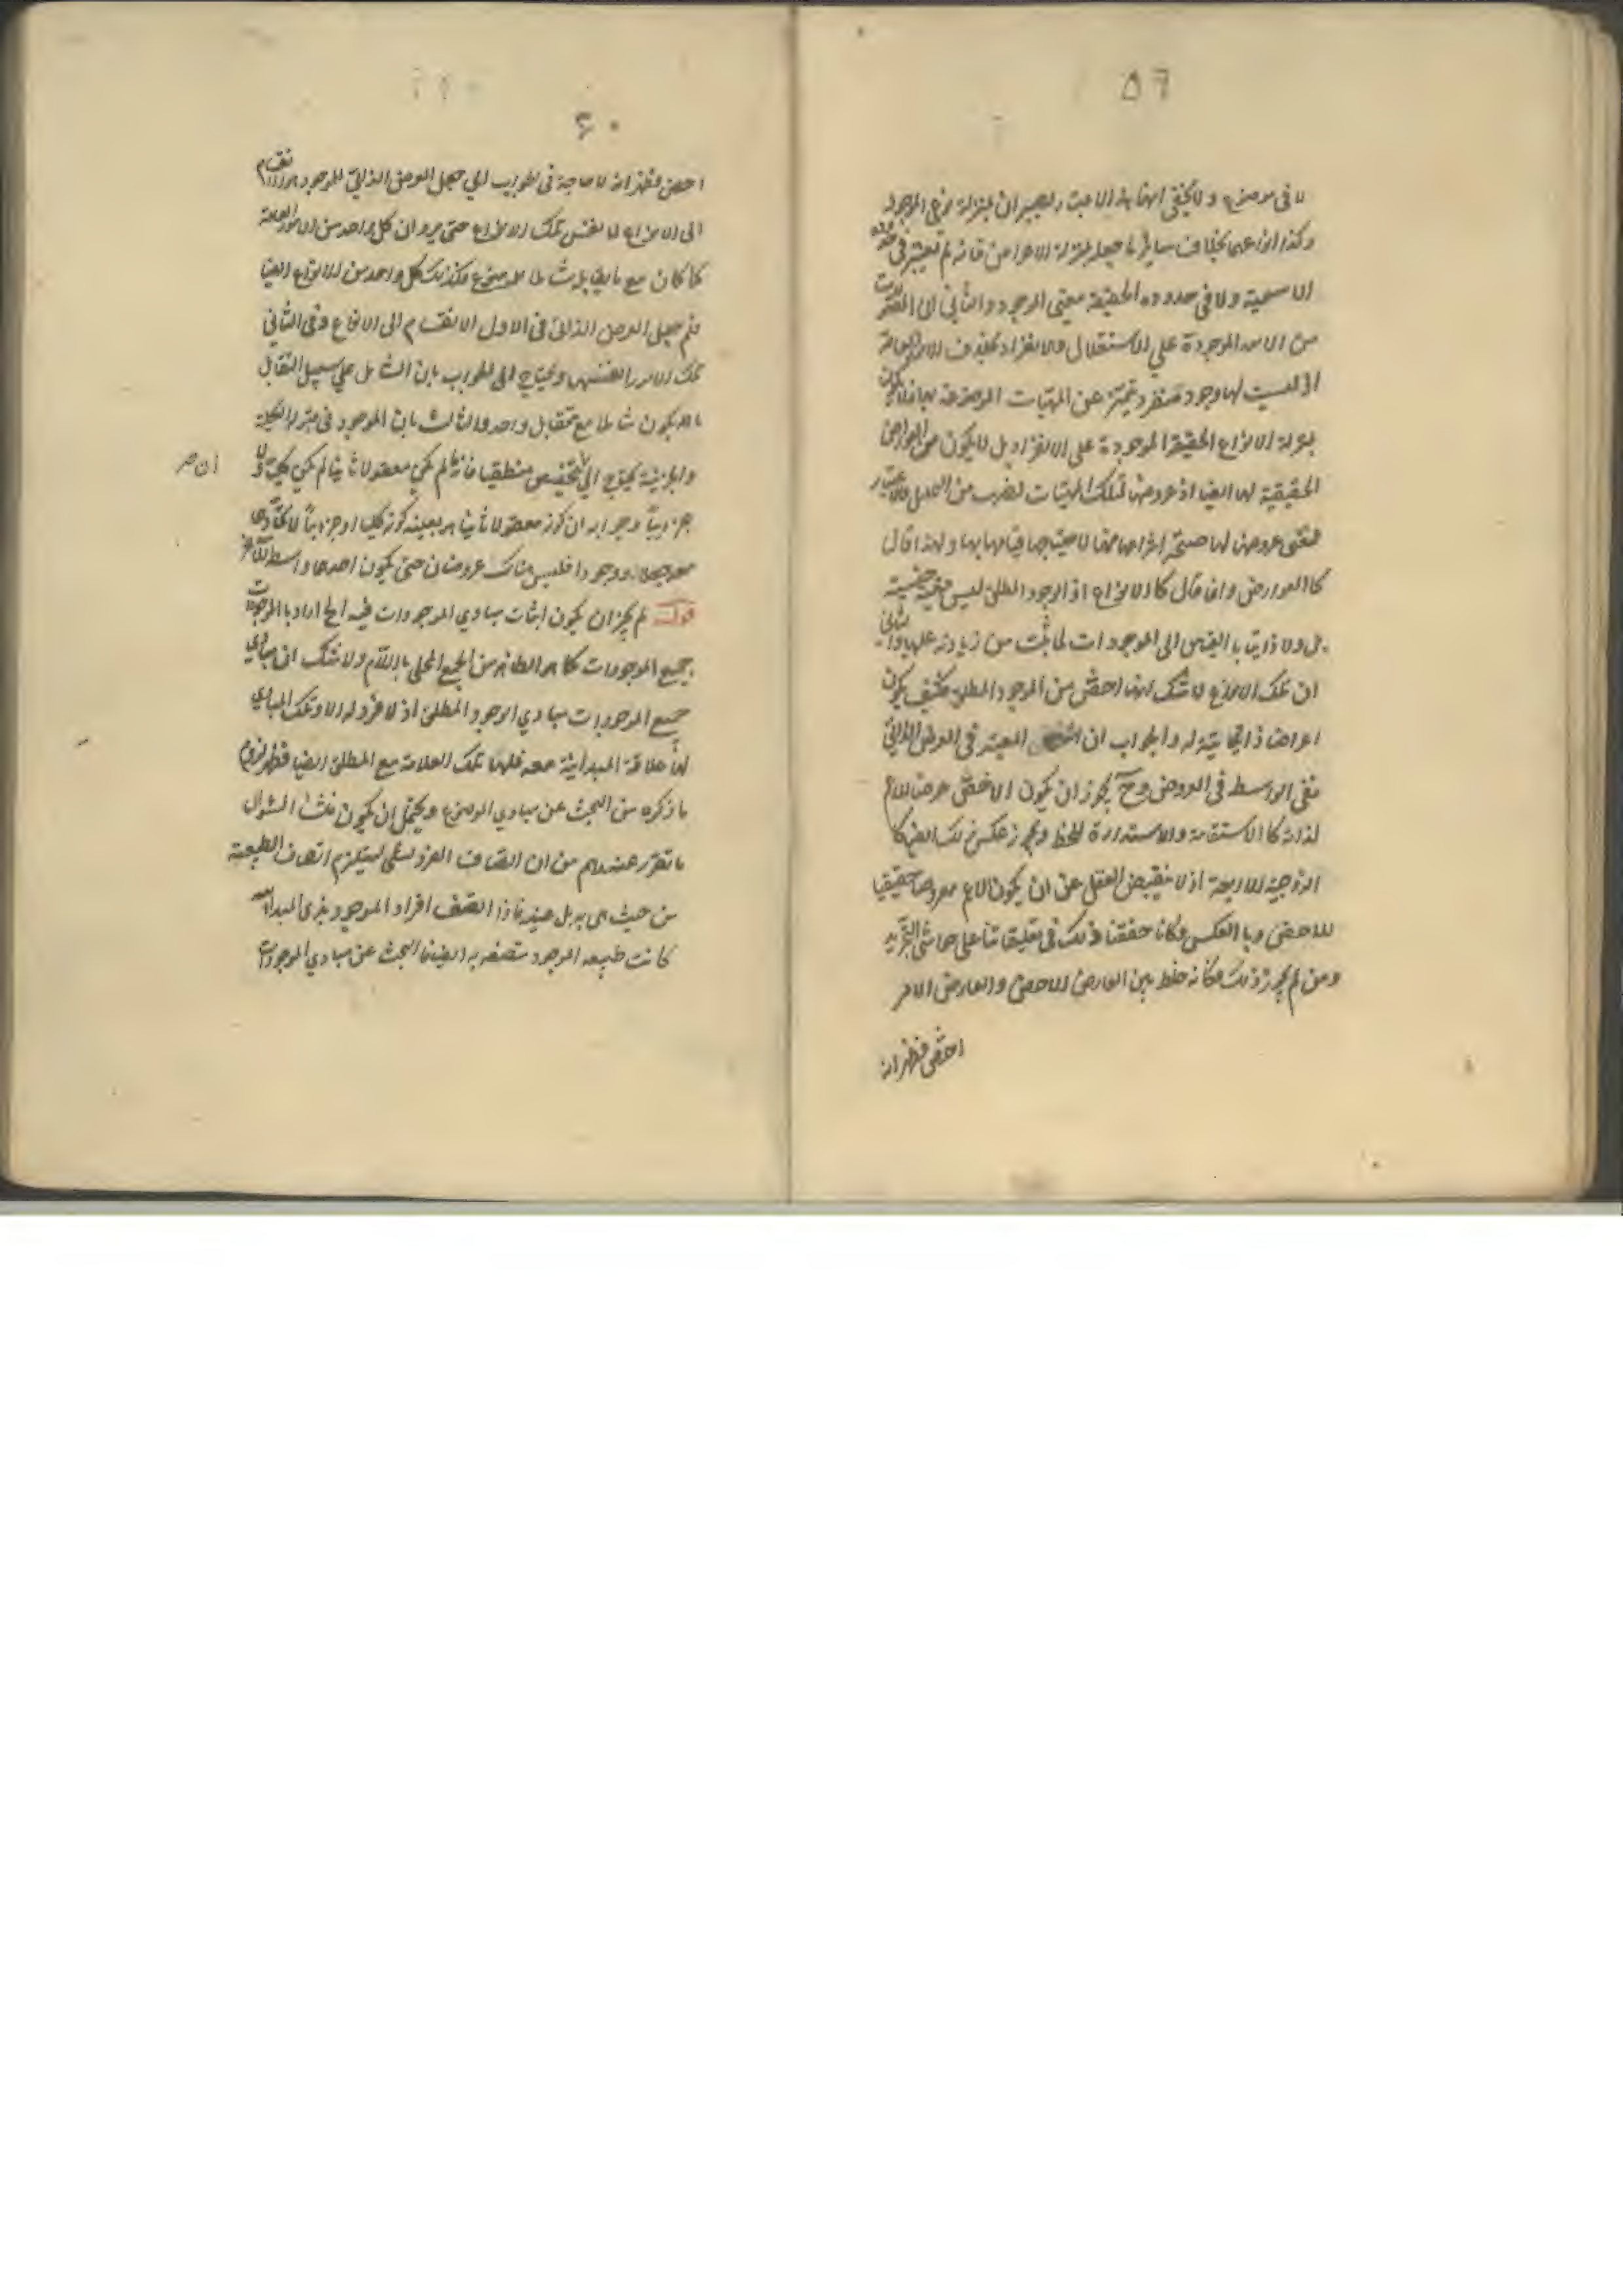 ٥٦
لا فى موضوع ولا يخفى انها بهذا الاعتبار يصير ان بمنزلة نوع الموجود
وكذا انواعهما بخلاف سائر ما جعله بمنزلة الاعراض فانه لم يعتبر فى حدوده
الاسمية ولا فى حدوده الحقيقة معنى الموجود والثانى ان المقولات
من الامور الموجودة على الاستقلال والانفراد بخلاف الامور العامة
اذ ليست لها وجود منفرد متميز عن المهيات الموضوعة لها فلا يكون
بمنزلة الانواع الحقيقة الموجودة على الانفراد بل لا يكون من العوارض
الحقيقية لها ايضا اذ عروضها لتلك المهيات لضرب من التحليل والاعتبار
فمعنى عروضها لها صحة انتزاعها منها لا حقيقة قيامها بها ولهذا قال
كالعوارض وانما قال كالانواع اذ الوجود المطلق ليس حقيقة جنسية
بل ولا ذاتيا بالقياس الى الموجودات لما ثبت من زيادته عليها والثانى
ان تلك الانواع لا شك انها اخص من الموجود المطلق فكيف يكون
اعراضا ذاتية له والجواب ان المعتبر فى العرض الذاتى
نفى الواسطة فى العروض وح يجوز ان يكون الاخص عرضا للاعم
لذاته كالاستقامة والاستدارة للخط ويجوز عكس ذلك ايضا كا
الزوجية للاربعة اذ لا ينقبض العقل عن ان يكون الاعم معروضا حقيقيا
للاخص وبالعكس وكنا حققنا ذلك فى تعليقاتنا على حواشى التجريد
ومن لم يجوز ذلك فكانه خلط بين العارض الاخص والعارض لامر
اخص فظهر انه
٦٠
اخص فظهر انه لا حاجة فى الجواب الى جعل العرض الذاتى للموجود هو الانقسام
الى الانواع لا نفس تلك الانواع حتى يرد ان كل واحد من الامور العامة
كما كان مع مايقابله شاملا للموضوع فكذلك كل واحد من الانواع ايضا
فلم جعل العرض الذاتى فى الاول الانقسام الى الانواع وفى الثانى
تلك الامور انفسها ويحتاج الى الجواب بان الشامل على سبيل التقابل
ما يكون شاملا مع مقابل واحد والثالث بان الموجود فى مرتبة الكلية
والجزئية يحتاج الى تخصيص منطقيا فانه ما لم يكن معقولا ثانيا لم يكن كليا ولا
جزئيا وجوابه ان كونه معقولا ثانيا هو بعينه كونه كليا او جزئيا لاتحادهما
وجودا فليس هناك عروضان حتى يكون احدهما واسطة للآخر
قوله لم يجز ان يكون اثبات مبادى الموجودات فيه الخ اراد بالموجودات
جميع الموجودات كما هو الظاهر من الجمع المحلى باللام ولا شك ان مبادى
جميع الموجودات مبادى الوجود المطلق اذ لا فرد له الا وتلك المبادى
لها علاقة المبدائية معه فلها تلك العلاقة مع المطلق ايضا فظهر لزوم
ما ذكره من البحث عن مبادى الموضوع ويحتمل ان يكون منشأ السؤال
ما تقرر عندهم من ان اتصاف الفرد بشئ يستلزم اتصاف الطبيعة
من حيث هى به بل عينه فاذا اتصف افراد الموجود بذى المبدائية
كانت طبيعة الموجود متصفة به ايضا فالبحث عن مبادى الموجودات